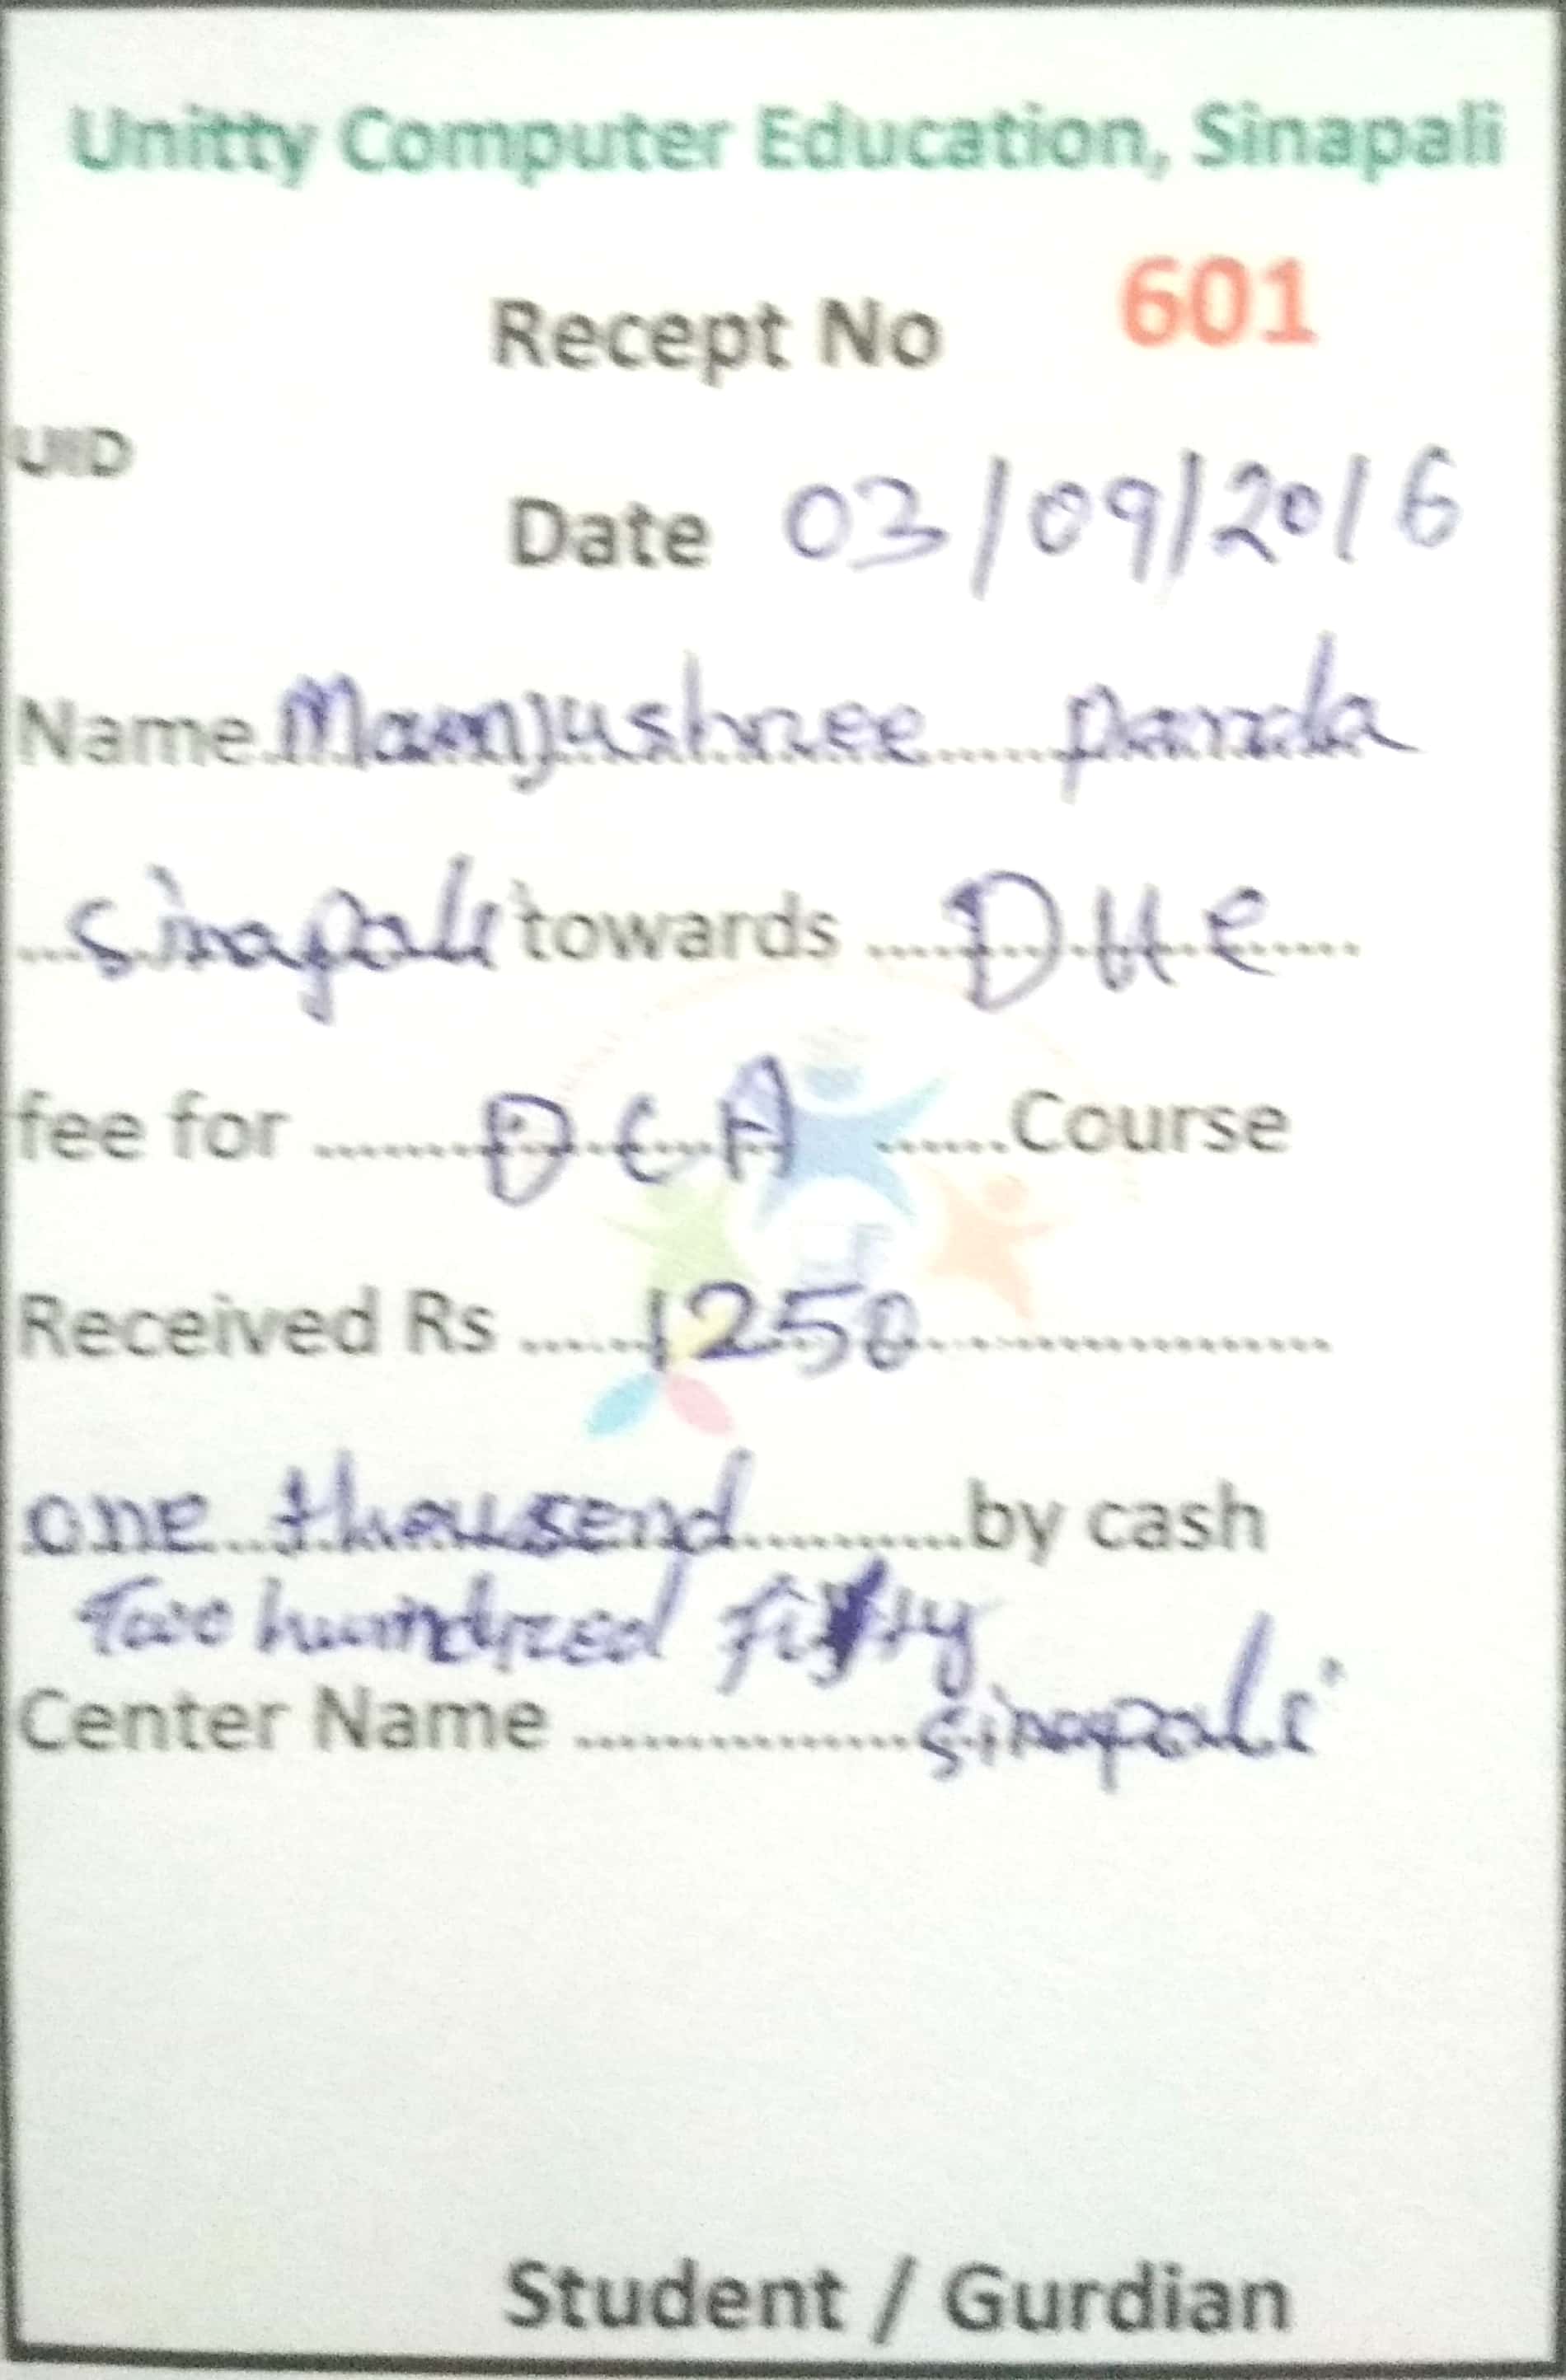 Unitty Computer Education, Sinapali
Recept No 601
UID
Date 03/09/2016
Name Manjushree panda
sinapali towards DUE
fee for DCA Course
Received Rs 1250
one thousend by cash
Two hundred fifty
Center Name sinapali
Student / Gurdian